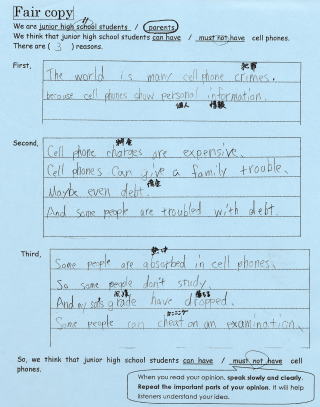 Fair copy
We are junior high school students / parents.
We think that junior high school students can have / must not have cell phones.
There are ( 3 ) reasons.
First,
犯罪
The world is many cell phone crimes.
because cell phones show personal information.
個人 情報
Second,
料金
Cell phone charges are expensive.
Cell phones can give a family trouble.
借金
Maybe even debt.
And some people are troubled with debt.
Third,
熱中
Some people are absorbed in cell phones.
So some people don't study.
成績 落ちる
And my grade have dropped.
カンニング
Some people can cheat on an examination.
So, we think that junior high school students can have / must not have cell phones.
When you read your opinion, speak slowly and clearly.
Repeat the important parts of your opinion. It will help
listeners understand your idea.